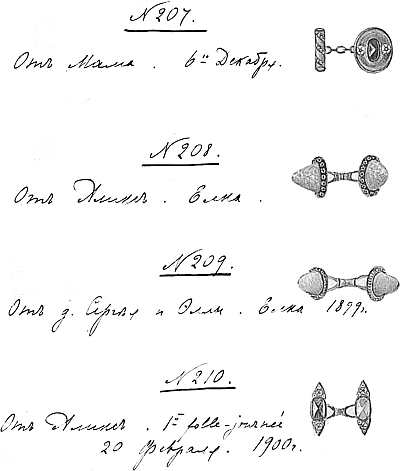 N 207.
Отъ Мама. 6го Декабря.
N 208.
Отъ Аликсъ. Елка.
N 209.
Отъ д. Сергѣя и Эллы. Елка 1899г.
N 210.
Отъ Аликсъ. 1е folle-journée
20 февраля. 1900г.